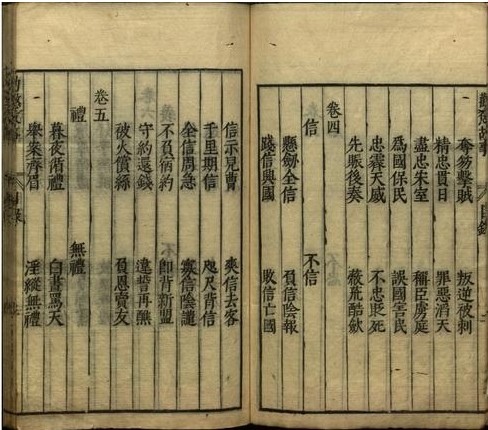 勸懲故事 目錄
奪笏擊賊 叛逆被刺
精忠貫日 罪惡滔天
盡忠朱室 稱臣虜庭
爲國保民 誤國害民
忠霖天威 不忠貶死
先賑後奏 荒酷歛
卷四
信 不信
懸劍全信 負信陰報
踐信興國 敗信亡國
信示兒曹 爽信去客
千里期信 咫尺背信
全信周急 寡信陰譴
不負宿約 即背新盟
守約還錢 違誓再醮
被火償絲 負恩賣友
卷五
禮 無禮
暮夜循禮 白晝罵天
舉案齊眉 淫縱無禮